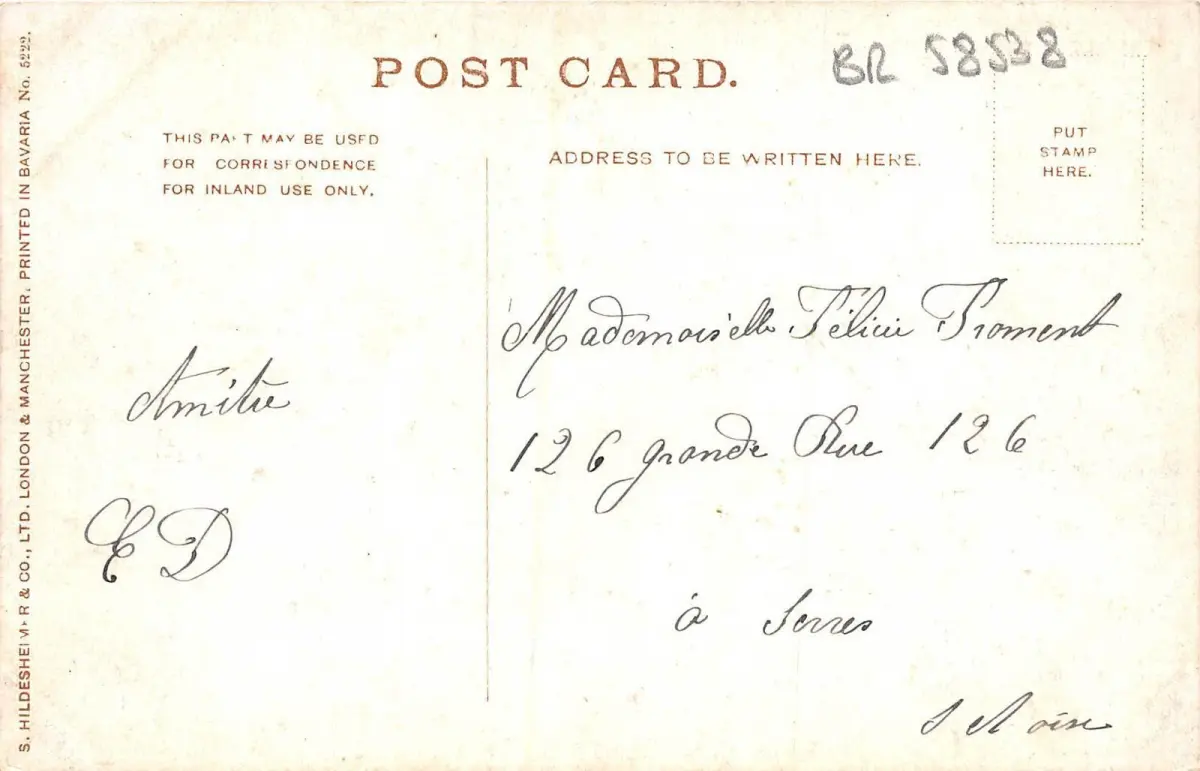 POST CARD.
BR 58538
THIS PART MAY BE USED
FOR CORRESPONDENCE
FOR INLAND USE ONLY.
ADDRESS TO BE WRITTEN HERE.
PUT
STAMP
HERE.
Amitié
E D
Mademoiselle Félicie Froment
126 grande Rue 126
à Sevres
S et Oise
S. HILDESHEIMER & CO., LTD. LONDON & MANCHESTER. PRINTED IN BAVARIA No. 5222.